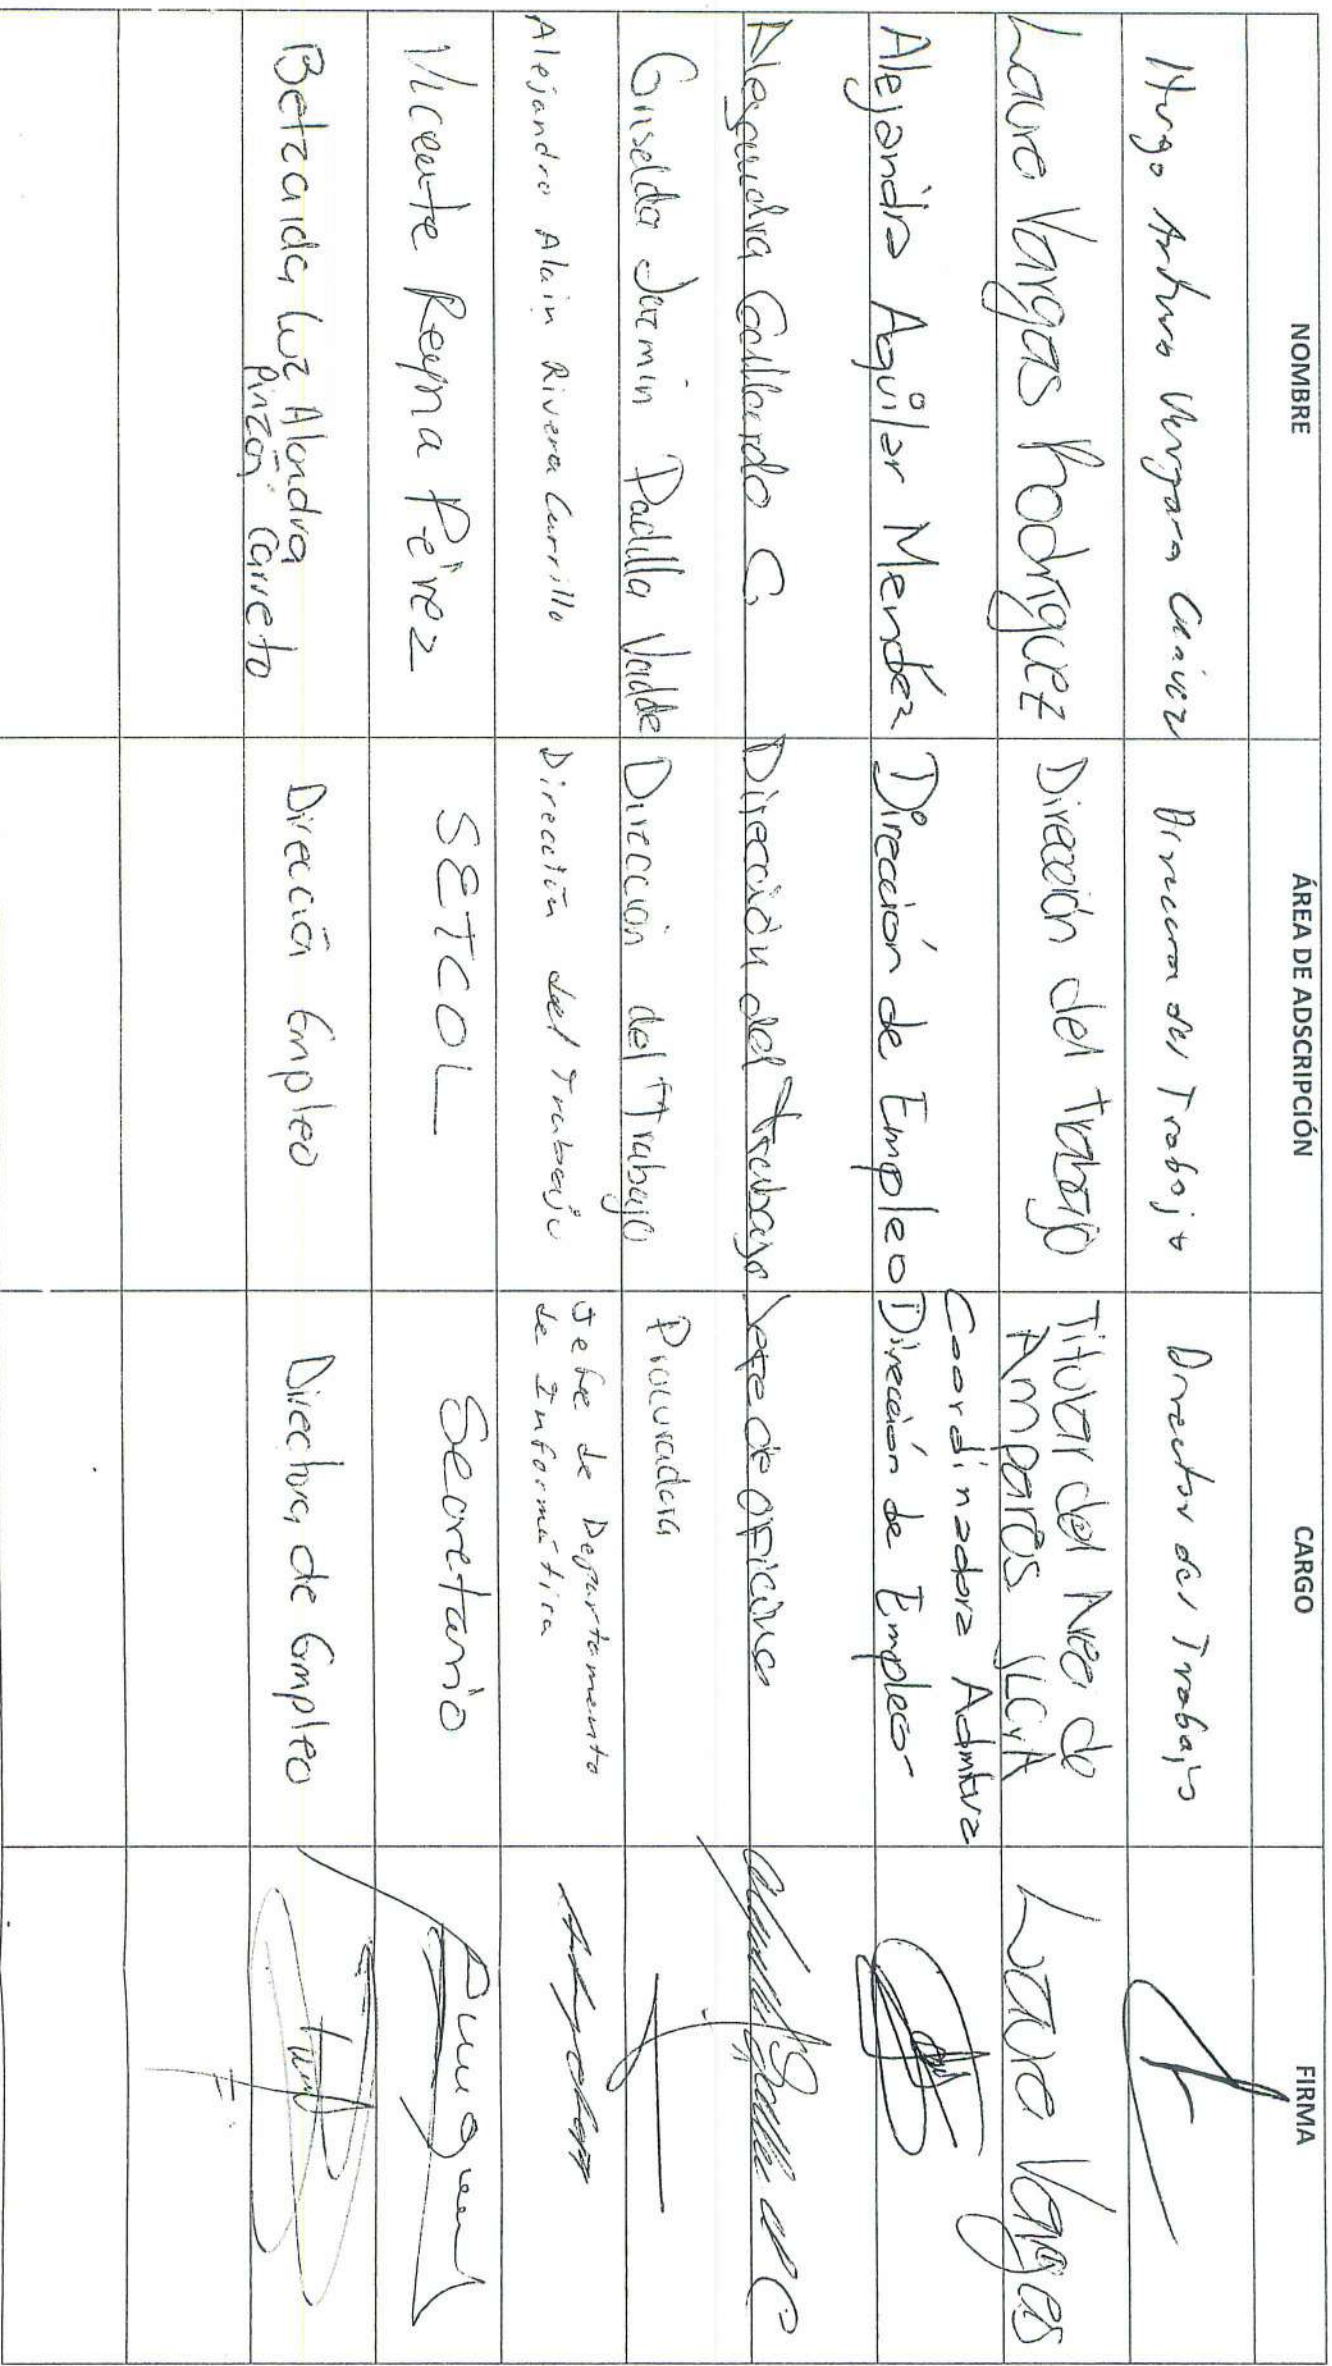 NOMBRE ÁREA DE ADSCRIPCIÓN CARGO FIRMA
Hugo Arturo Vergara Chávez Dirección del Trabajo Director del Trabajo
Laura Vargas Rodríguez Dirección del Trabajo Titular del Area de
Amparos JLCyA Laura Vargas
Alejandra Aguilar Mendéz Dirección de Empleo Coordinadora Admtva
Dirección de Empleo
Alessandra Gallardo C. Dirección del Trabajo Jefe de oficina
Griselda Jazmin Padilla Valdde Dirección del Trabajo Procuradora
Alejandro Alain Rivera Carrillo Dirección del Trabajo Jefe de Departamento
de Informática
Vicente Reyna Pérez SETCOL Secretario
Betzaida Luz Alondra
Pinzón Carreto Dirección Empleo Directora de Empleo